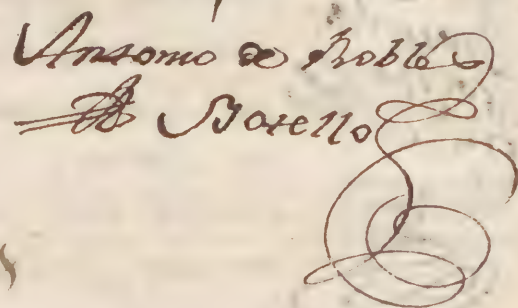 Antonio de Robles
Botello